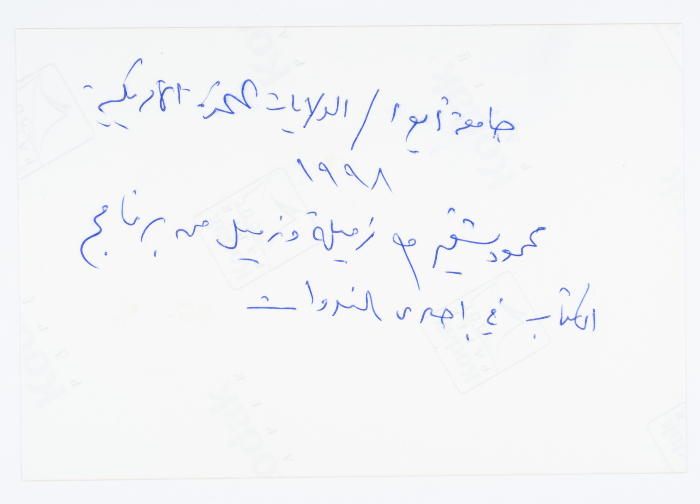 جامعة أيوا / الولايات المتحدة الأمريكية
١٩٩٨
محمود شقير مع زميلة وزميل من برنامج
الكتاب في إحدى الندوات